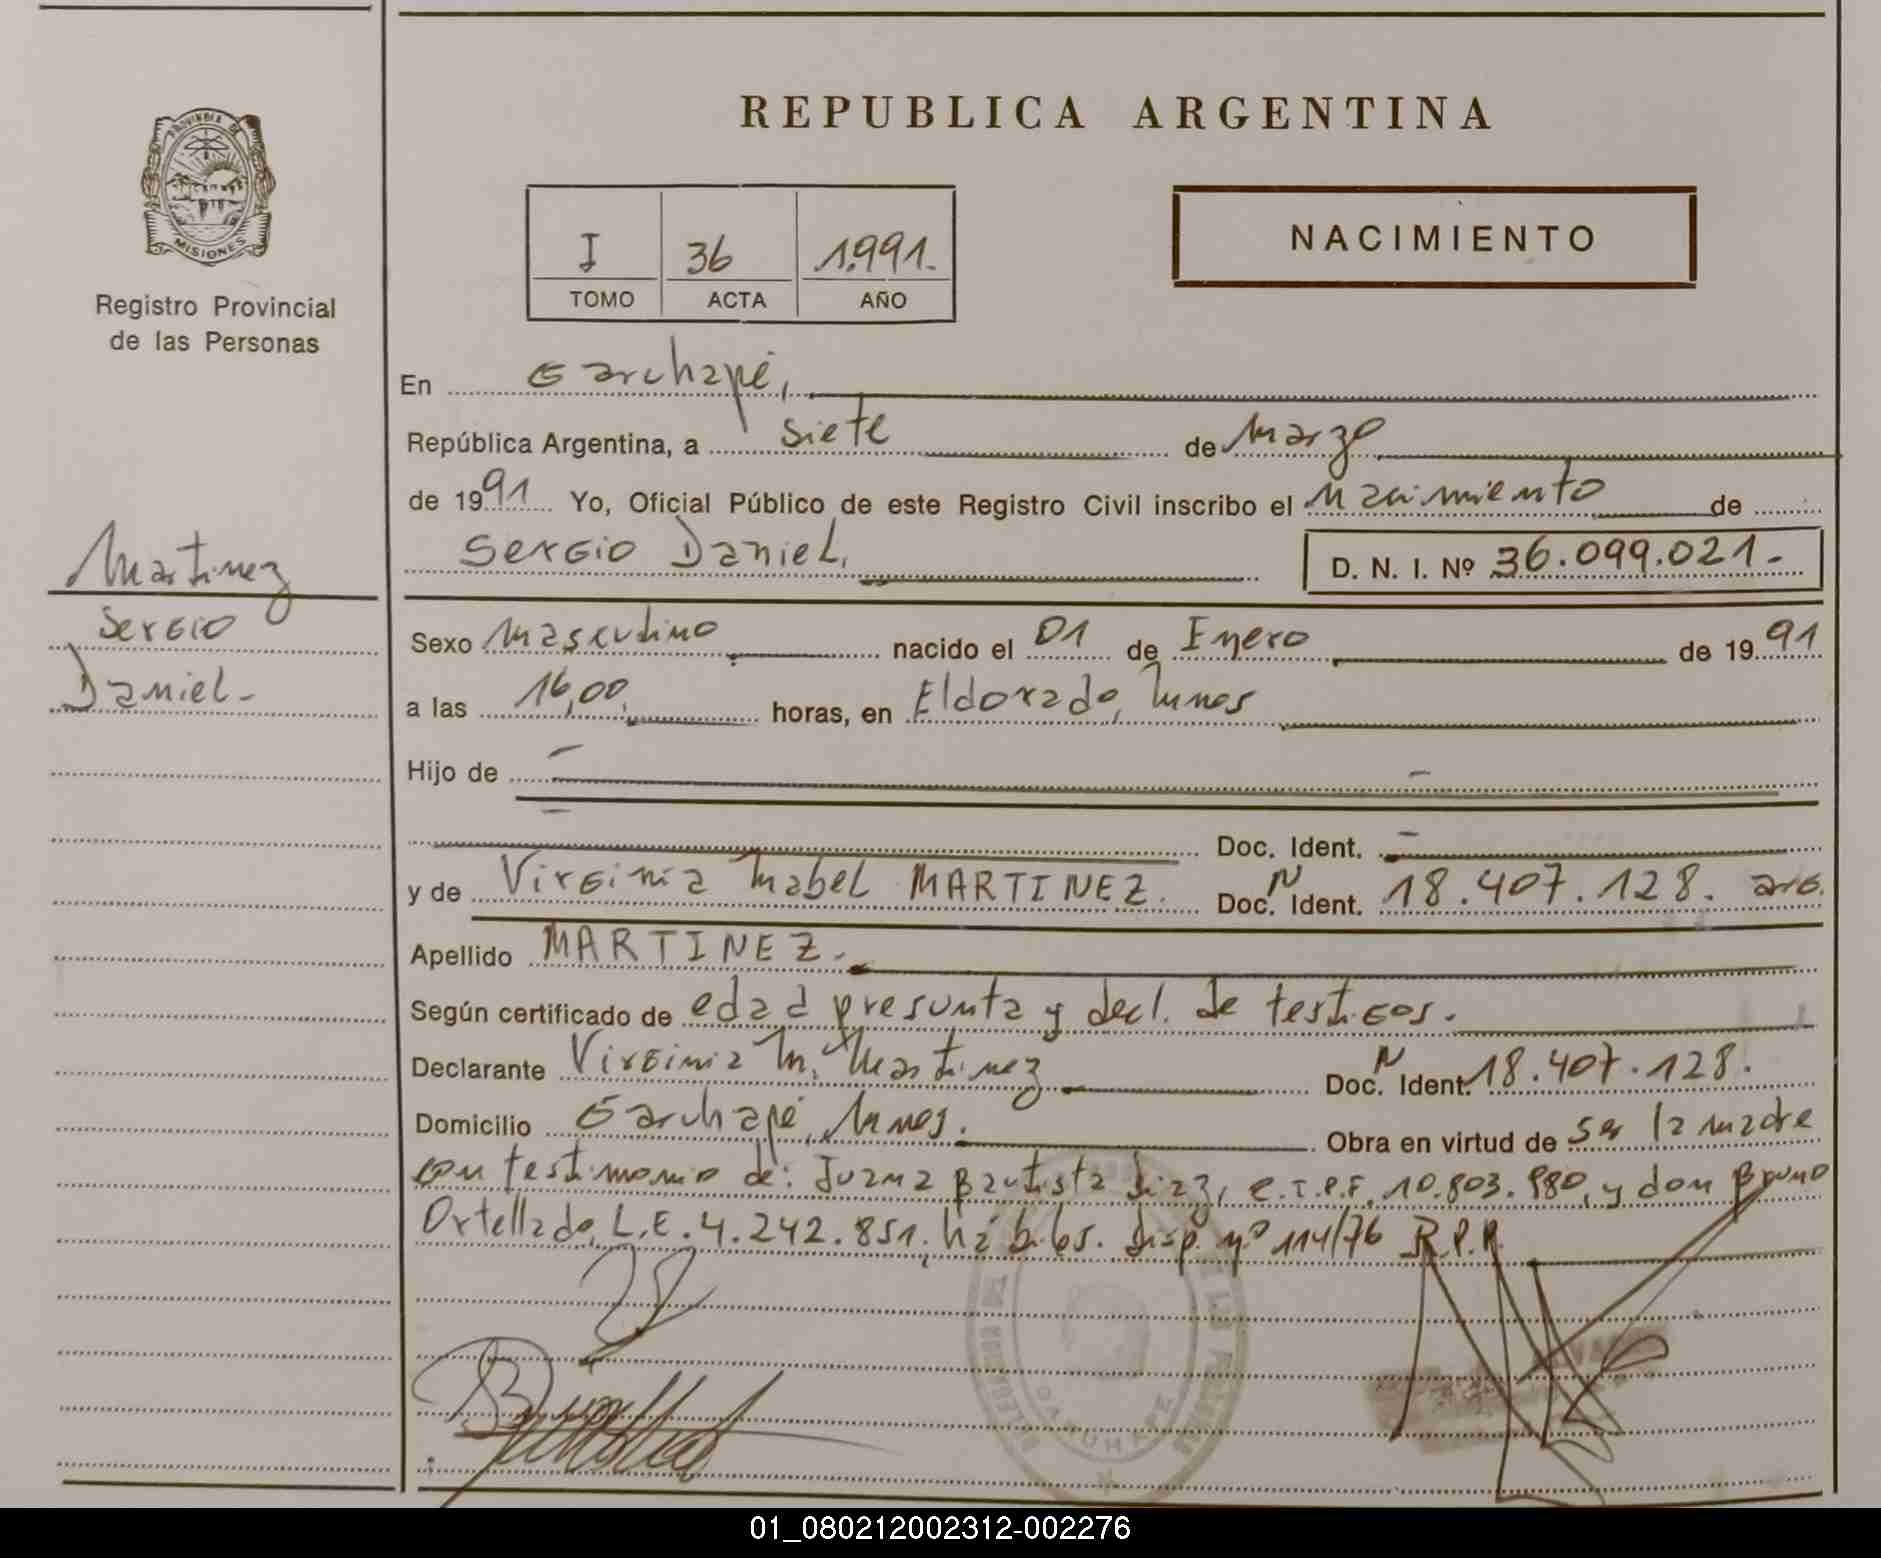 REPUBLICA ARGENTINA
PROVINCIA DE
MISIONES
Registro Provincial
de las Personas
I 36 1.991.
TOMO ACTA AÑO
NACIMIENTO
En Garuhapé,
República Argentina, a siete de Marzo
de 1991 Yo, Oficial Público de este Registro Civil inscribo el nacimiento de
Sergio Daniel.
D. N. I. Nº 36.099.021.-
Martinez
Sergio
Daniel-
Sexo Masculino nacido el 01 de Enero de 1991
a las 16,00, horas, en Eldorado, Mnes
Hijo de -
Doc. Ident. -
y de Virginia Mabel MARTINEZ. Doc. N Ident. 18.407.128. arg.
Apellido MARTINEZ.-
Según certificado de edad presunta y decl. de testigos.
Declarante Virginia M. Martinez Doc. N Ident. 18.407.128.
Domicilio Garuhapé, Mnes. Obra en virtud de ser la madre
con testimonio de: Juana Bautista Diaz, C.I.P.F. 10.803.980, y don Bruno
Ortellado, L.E. 4.242.851. hábiles. Disp. nº 114/76 R.P.P.
GARUHAPE
01_080212002312-002276